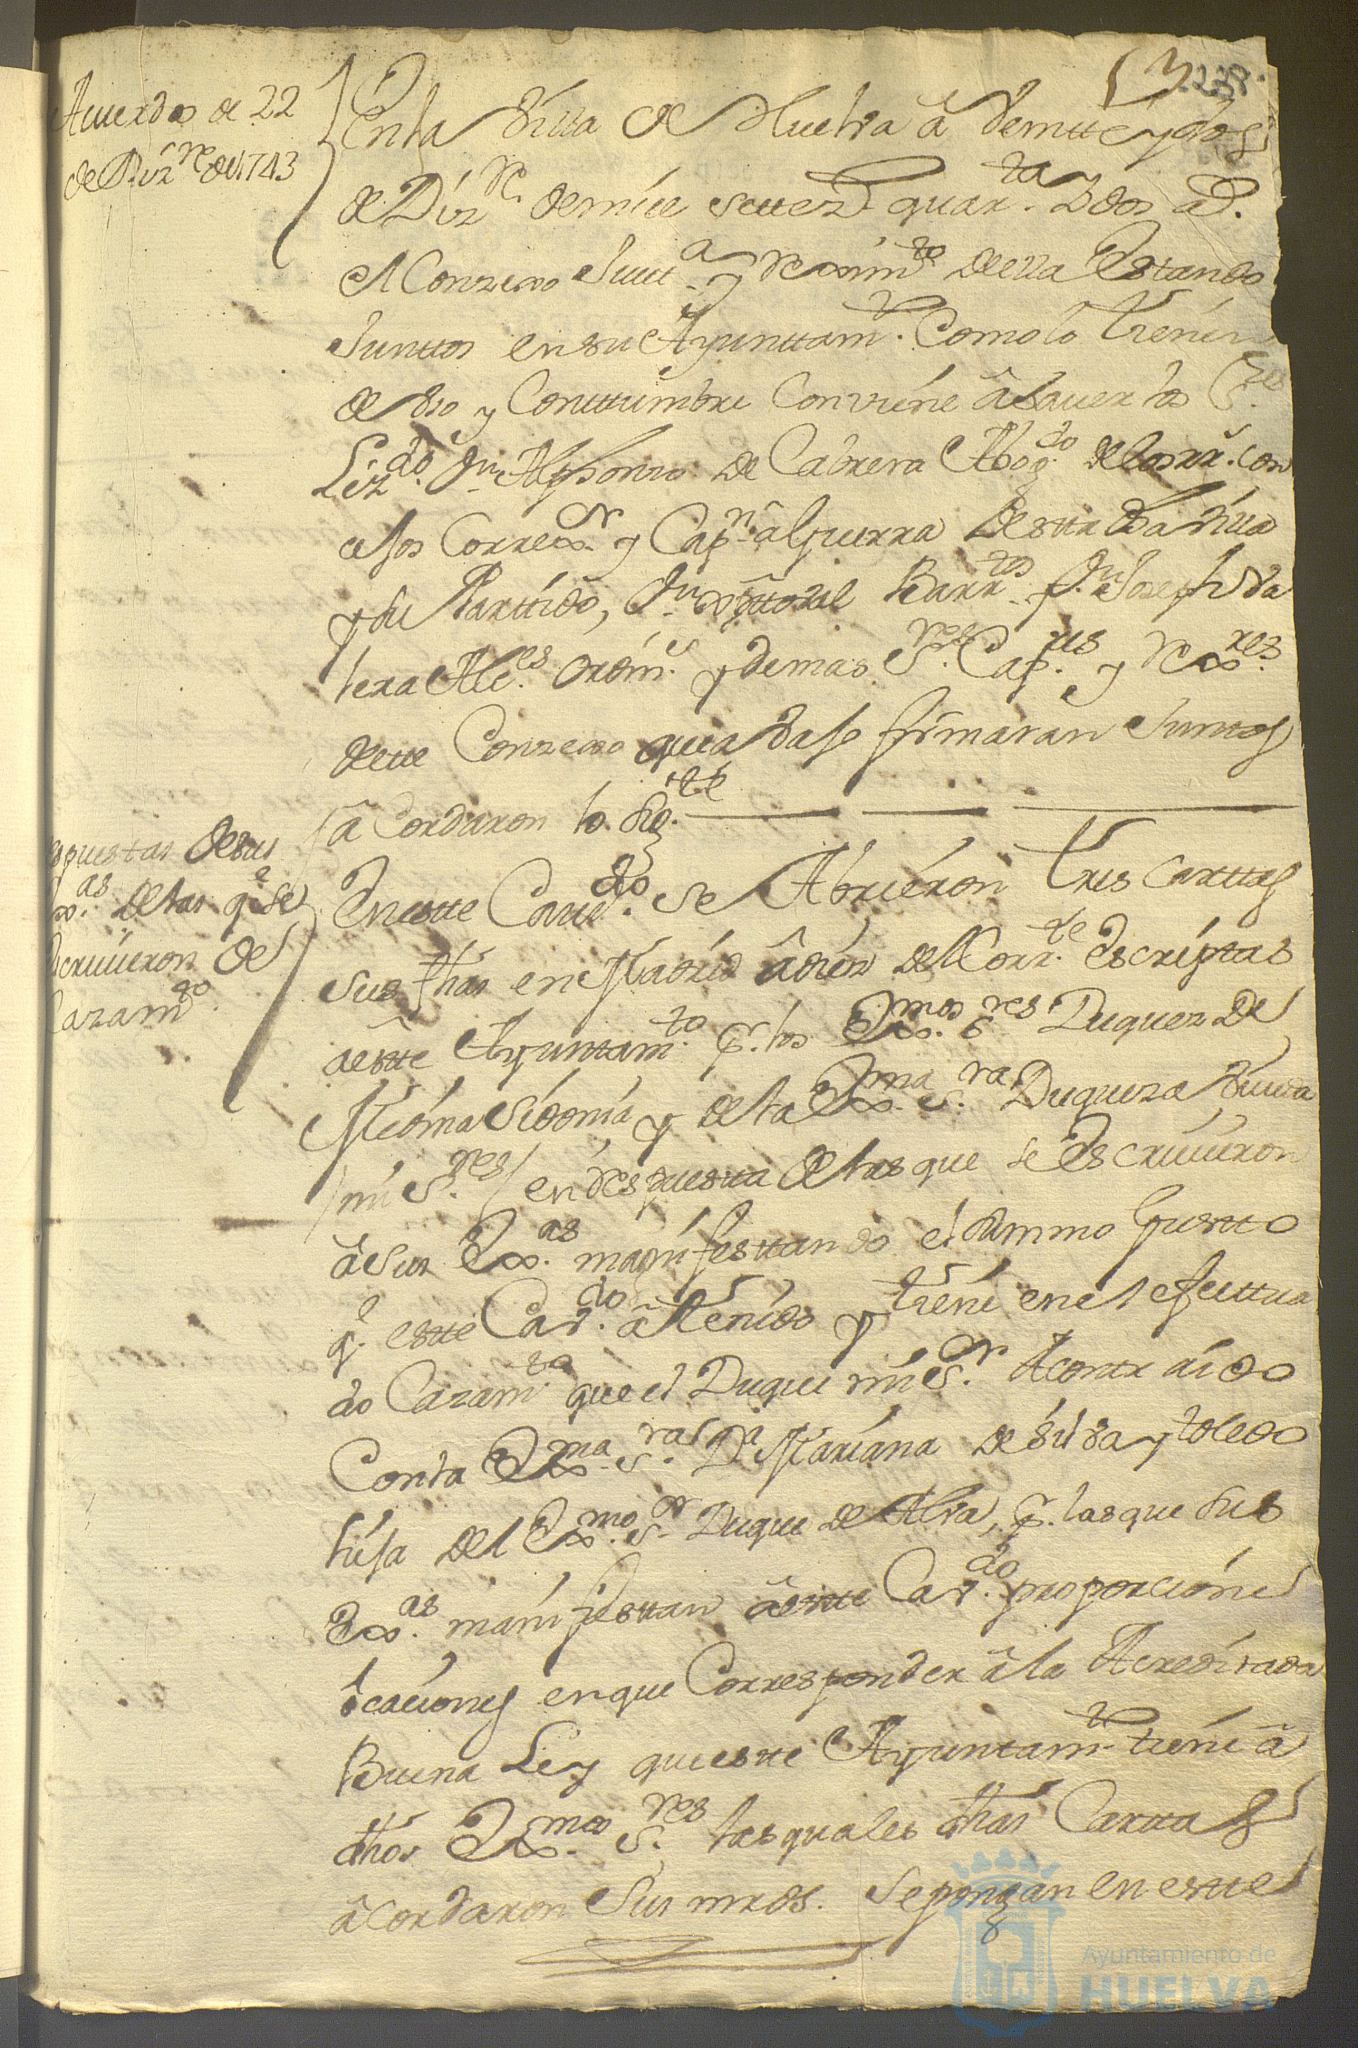 238
Acuerdo de 22
de Diz.re de 1743
En la Villa de Huelva â Veintte y dos
de Diz.re de mill settez.s quar.ta y dos a.s
el Conzexo Justt.a y Reximi.to de ella Estando
Junttos en su Ayunttam.to Como lo tienen
de Uso y Conttumbre Conviene âsauer los S.res
Liz.do Dn. Alphonso de Cabrera Abog.do de los R.s con
sejos Correx.r y Cap.n â Guerra de estta d.ha Villa
y su Parttido, Dn.
Barr.tos Dn. Joseph
Alc.es Ordin.s y demas S.res Cap.res y Rex.res
deste Conzexo que abajo firmaran Juntos
â Cordaron lo Sig.te
spuestas de sus
x.as de las q.e se
scriuieron de
Cazam.to
En estte Cauil.do se Abrieron tres Carttas
sus fhas en Madrid â diez del Corr.te Escriptas
a estte Ayuntam.to p.r los Ex.mos S.res Duques de
Medina Sidonia, y de la Ex.ma S.ra Duqueza Viuda
mis S.res en Respuestta de las que se Escriuieron
â Sus Ex.as manifesttando el Summo Gustto
q.e estte Cav.do â tenido y tiene en el efecttua
do Cazam.to que el Duque mi S.r â Contraido
Con la Ex.ma S.ra D.a Mariana de Silva y toledo
hija del Ex.mo S.r Duque de Alva, p.r las que Sus
Ex.as manifiesttan â estte Cav.do proporcione
ocaciones en que Corresponder â la Acreditada
Buena Ley que estte Ayuntam.to tiene â
dhos Ex.mos S.res las quales dhas Carttas
â cordaron Sus mrds. Se pongan en estte
Ayuntamiento de
HUELVA